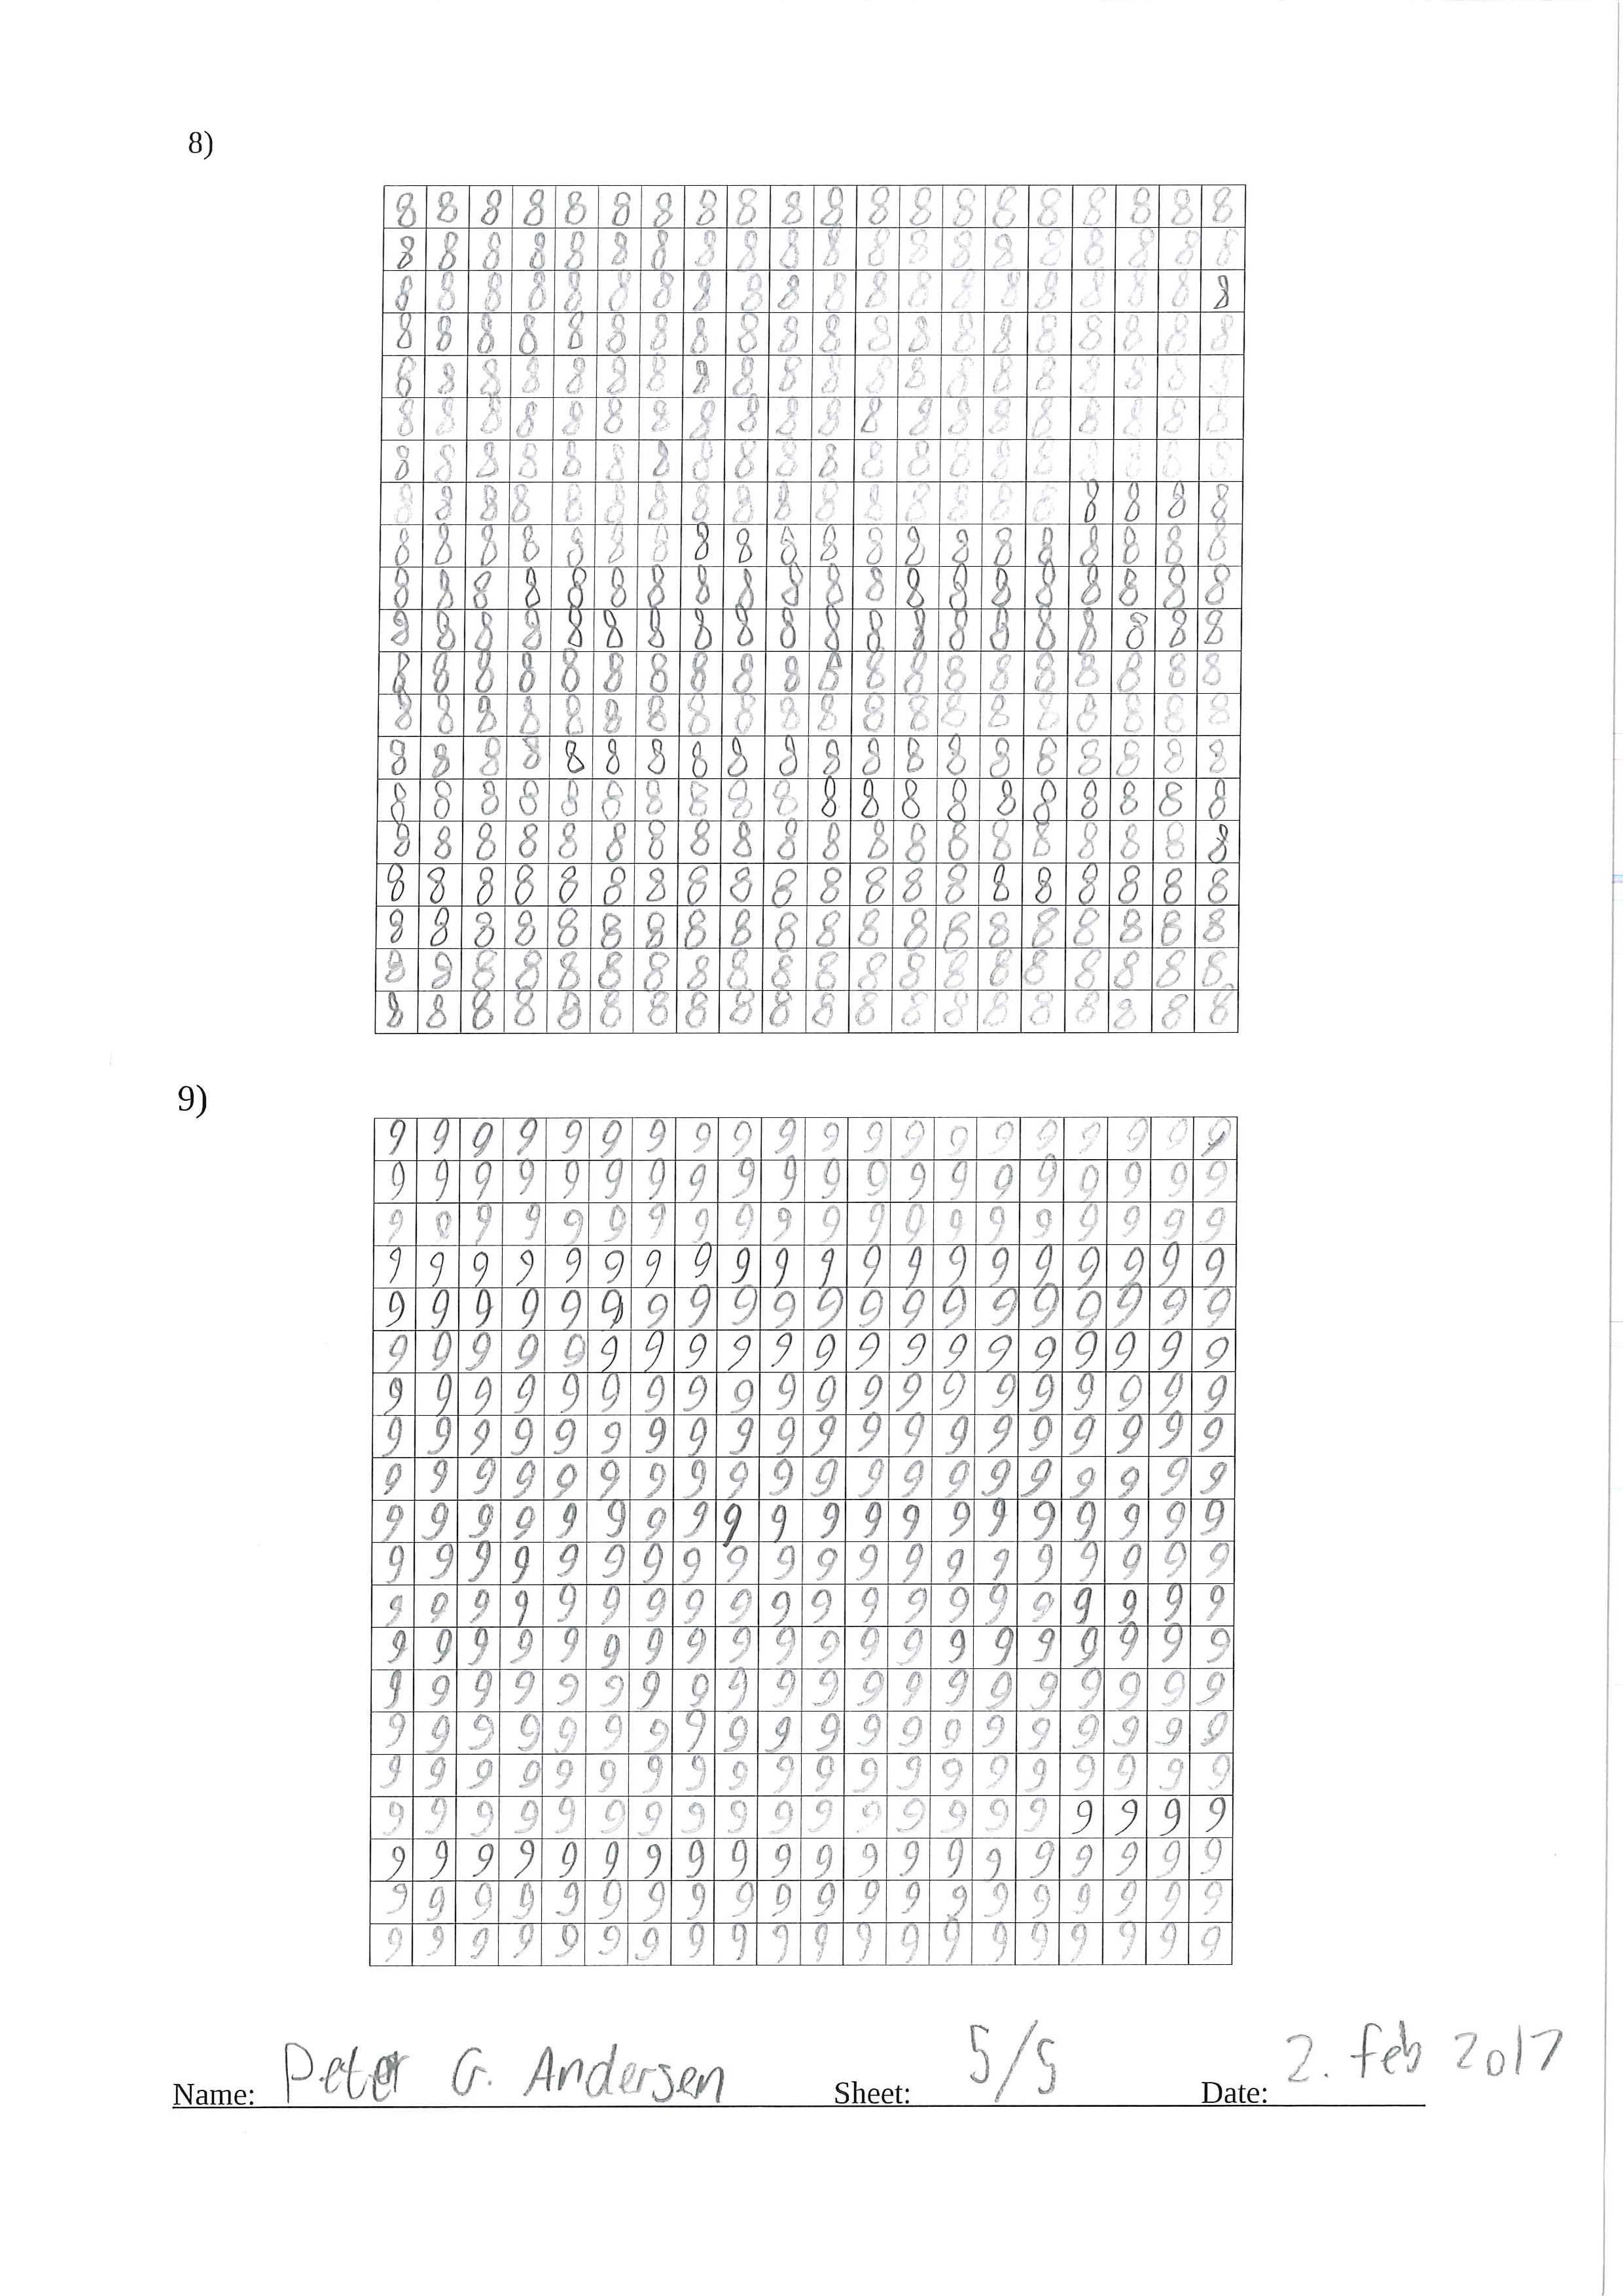 8)
8 8 8 8 8 8 8 8 8 8 8 8 8 8 8 8 8 8 8 8
8 8 8 8 8 8 8 8 8 8 8 8 8 8 8 8 8 8 8 8
8 8 8 8 8 8 8 8 8 8 8 8 8 8 8 8 8 8 8 8
8 8 8 8 8 8 8 8 8 8 8 8 8 8 8 8 8 8 8 8
8 8 8 8 8 8 8 8 8 8 8 8 8 8 8 8 8 8 8 8
8 8 8 8 8 8 8 8 8 8 8 8 8 8 8 8 8 8 8 8
8 8 8 8 8 8 8 8 8 8 8 8 8 8 8 8 8 8 8 8
8 8 8 8 8 8 8 8 8 8 8 8 8 8 8 8 8 8 8 8
8 8 8 8 8 8 8 8 8 8 8 8 8 8 8 8 8 8 8 8
8 8 8 8 8 8 8 8 8 8 8 8 8 8 8 8 8 8 8 8
8 8 8 8 8 8 8 8 8 8 8 8 8 8 8 8 8 8 8 8
8 8 8 8 8 8 8 8 8 8 8 8 8 8 8 8 8 8 8 8
8 8 8 8 8 8 8 8 8 8 8 8 8 8 8 8 8 8 8 8
8 8 8 8 8 8 8 8 8 8 8 8 8 8 8 8 8 8 8 8
8 8 8 8 8 8 8 8 8 8 8 8 8 8 8 8 8 8 8 8
8 8 8 8 8 8 8 8 8 8 8 8 8 8 8 8 8 8 8 8
8 8 8 8 8 8 8 8 8 8 8 8 8 8 8 8 8 8 8 8
8 8 8 8 8 8 8 8 8 8 8 8 8 8 8 8 8 8 8 8
8 8 8 8 8 8 8 8 8 8 8 8 8 8 8 8 8 8 8 8
8 8 8 8 8 8 8 8 8 8 8 8 8 8 8 8 8 8 8 8
9)
9 9 9 9 9 9 9 9 9 9 9 9 9 9 9 9 9 9 9 9
9 9 9 9 9 9 9 9 9 9 9 9 9 9 9 9 9 9 9 9
9 9 9 9 9 9 9 9 9 9 9 9 9 9 9 9 9 9 9 9
9 9 9 9 9 9 9 9 9 9 9 9 9 9 9 9 9 9 9 9
9 9 9 9 9 9 9 9 9 9 9 9 9 9 9 9 9 9 9 9
9 9 9 9 9 9 9 9 9 9 9 9 9 9 9 9 9 9 9 9
9 9 9 9 9 9 9 9 9 9 9 9 9 9 9 9 9 9 9 9
9 9 9 9 9 9 9 9 9 9 9 9 9 9 9 9 9 9 9 9
9 9 9 9 9 9 9 9 9 9 9 9 9 9 9 9 9 9 9 9
9 9 9 9 9 9 9 9 9 9 9 9 9 9 9 9 9 9 9 9
9 9 9 9 9 9 9 9 9 9 9 9 9 9 9 9 9 9 9 9
9 9 9 9 9 9 9 9 9 9 9 9 9 9 9 9 9 9 9 9
9 9 9 9 9 9 9 9 9 9 9 9 9 9 9 9 9 9 9 9
9 9 9 9 9 9 9 9 9 9 9 9 9 9 9 9 9 9 9 9
9 9 9 9 9 9 9 9 9 9 9 9 9 9 9 9 9 9 9 9
9 9 9 9 9 9 9 9 9 9 9 9 9 9 9 9 9 9 9 9
9 9 9 9 9 9 9 9 9 9 9 9 9 9 9 9 9 9 9 9
9 9 9 9 9 9 9 9 9 9 9 9 9 9 9 9 9 9 9 9
9 9 9 9 9 9 9 9 9 9 9 9 9 9 9 9 9 9 9 9
9 9 9 9 9 9 9 9 9 9 9 9 9 9 9 9 9 9 9 9
Name: Peter G. Andersen Sheet: 5/5 Date: 2. Feb 2017